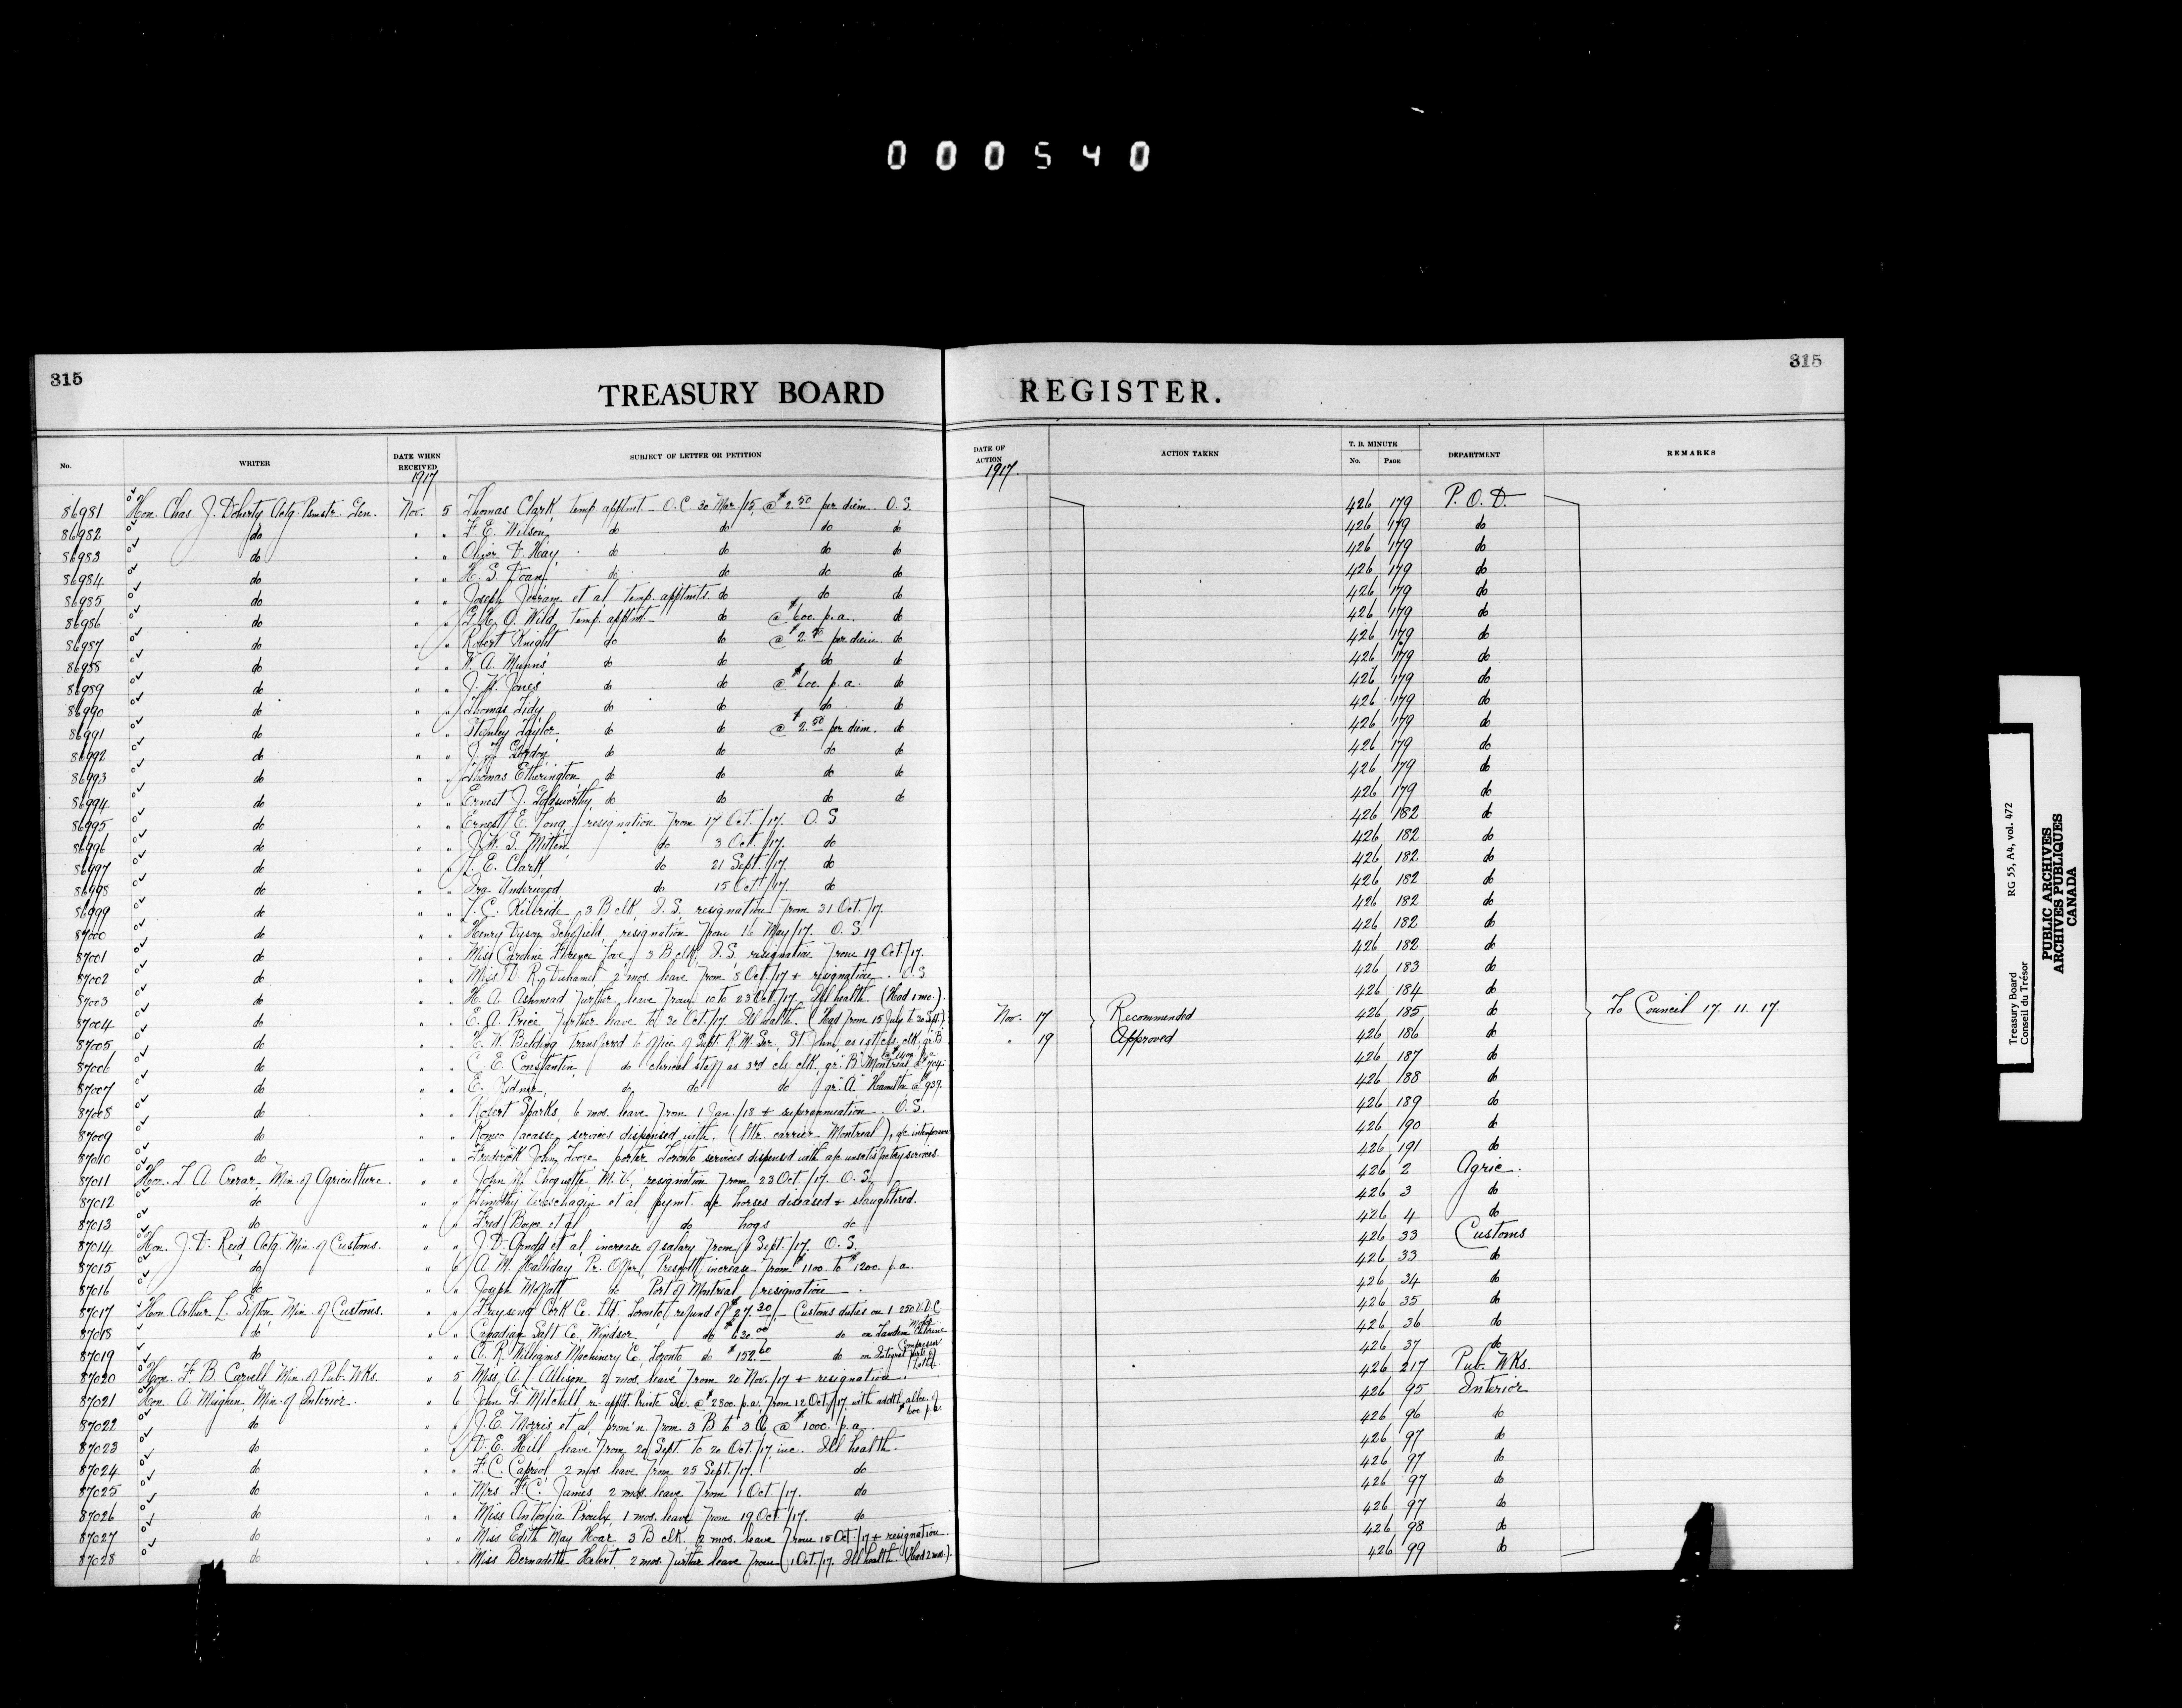 000540
315
315
TREASURY BOARD REGISTER.
No. WRITER DATE WHEN RECEIVED SUBJECT OF LETTER OR PETITION DATE OF ACTION ACTION TAKEN T. B. MINUTE No. PAGE DEPARTMENT REMARKS
1917 1917.
86981 Hon. Chas J. Doherty Actg. Pmstr. Gen. Nov. 5 Thomas Clark temp apptmt O.C 30 Mar/15 @ $2.50 per diem. O.S. 426 179 P.O.D.
86982 do " " F. E. Wilson do do do do 426 179 do
86983 do " " Oliver D. Hay do do do do 426 179 do
86984 do " " H. S. Doan do do do do 426 179 do
86985 do " " Joseph Jerram et al temp. apptmts. do do do 426 179 do
86986 do " " G. H. O. Wild temp. apptmt do @ $600. p.a. do 426 179 do
86987 do " " Robert Knight do do @ $2.50 per diem. do 426 179 do
86988 do " " W. A. Munns do do do do 426 179 do
86989 do " " J. W. Jones do do @ $600. p.a. do 426 179 do
86990 do " " Thomas Tidy do do do do 426 179 do
86991 do " " Stanley Taylor do do @ $2.50 per diem. do 426 179 do
86992 do " " J. Gordon do do do do 426 179 do
86993 do " " Thomas Etherington do do do do 426 179 do
86994 do " " Ernest J. Goldsworthy do do do do 426 179 do
86995 do " " Ernest E. Long resignation from 17 Oct./17. O.S 426 182 do
86996 do " " J. W. S. Mitten do 3 Oct./17. do 426 182 do
86997 do " " L. E. Clark do 21 Sept./17. do 426 182 do
86998 do " " Ira Underwood do 15 Oct./17. do 426 182 do
86999 do " " J. C. Kilbride 3 B clk. I.S. resignation from 31 Oct./17. 426 182 do
87000 do " " Henry Dyson Schofield resignation from 16 May/17. O.S 426 182 do
87001 do " " Miss Caroline Florence 3 B clk. I.S. resignation from 19 Oct/17. 426 182 do
87002 do " " Miss D. R. Duhamel 2 mos. leave from 5 Oct./17 + resignation. O.S 426 183 do
87003 do " " H. A. Ashmead further leave from 10 to 23 Oct./17. Ill health. (Had 1 mo.). 426 184 do
87004 do " " E. A. Price further leave to 30 Oct./17. Ill health. (Had from 15 July to 30 Sept.) Nov. 17 Recommended 426 185 do To Council 17. 11. 17.
87005 do " " E. W. Belding transferred to office of Supt. R. M. Ser. St John as 1st cls. clk. gr. B " 19 Approved 426 186 do
87006 do " " C. E. Constantin do clerical staff as 3rd cls clk. gr. "B" Montreal @ $704. 426 187 do
87007 do " " E. Zidner do do do gr. "A" Hamilton @ $939. 426 188 do
87008 do " " Robert Sparks 6 mos. leave from 1 Jan./18 + superannuation. O.S. 426 189 do
87009 do " " Romeo Lacasse services dispensed with. (lttr. carrier Montreal), a/c intemperance 426 190 do
87010 do " " Frederick John Loose porter Toronto services dispensed with a/c unsatisfactory services. 426 191 do
87011 Hon. T. A. Crerar, Min. of Agriculture. " " John A. Choquette M.V., resignation from 23 Oct./17. O.S. 426 2 Agric.
87012 do " " Timothy Wisschagin et al pymt. a/c horses diseased + slaughtered. 426 3 do
87013 do " " Fred Boyce et al do hogs do 426 4 do
87014 Hon. J. D. Reid, Actg. Min. of Customs. " " J. D. Arnold et al increase of salary from 1 Sept./17. O.S. 426 33 Customs
87015 do " 6 A. M. Halliday Pr. Offcr. Prescott increase from $1100 to $1200. p.a. 426 33 do
87016 do " " Joseph Moffatt do Port of Montreal resignation. 426 34 do
87017 Hon. Arthur L. Sifton, Min. of Customs. " " Freyseng Cork Co. Ltd. Toronto refund of $27.30 Customs duties on 1 250 V.D.C. Motor 426 35 do
87018 do " " Canadian Salt Co. Windsor do $630.00 do on Tandem Chlorine Compressor 426 36 do
87019 do " " A. R. Williams Machinery Co. Toronto do $152.60 do on Integral parts of Lathe 426 37 do
87020 Hon. F. B. Carvell Min. of Pub. Wks. " 5 Miss A. L. Allison 2 mos. leave from 20 Nov./17 + resignation. 426 217 Pub. Wks.
87021 Hon. A. Meighen, Min. of Interior. " 6 John G. Mitchell re-apptd. Private Sec. @ $2800. p.a. from 12 Oct./17. with addtl. allce. of $600. p.a. 426 95 Interior
87022 do " " J. E. Morris et al prom'n from 3 B to 3 A @ $1000. p.a. 426 96 do
87023 do " " D. E. Hill leave from 20 Sept. to 20 Oct./17 inc. Ill health. 426 97 do
87024 do " " F. C. Capreol 2 mos leave from 25 Sept./17. do 426 97 do
87025 do " " Mrs F. C. James 2 mos. leave from 1 Oct./17. do 426 97 do
87026 do " " Miss Antonia Proulx 1 mos. leave from 19 Oct./17. do 426 97 do
87027 do " " Miss Edith May Hoar 3 B clk. 2 mos. leave from 15 Oct./17 + resignation. 426 98 do
87028 do " " Miss Bernadette Hebert 2 mos. further leave from 1 Oct./17. Ill health. (Had 2 mos.). 426 99 do
Treasury Board RG 55, A4, vol. 472
Conseil du Trésor
PUBLIC ARCHIVES
ARCHIVES PUBLIQUES
CANADA